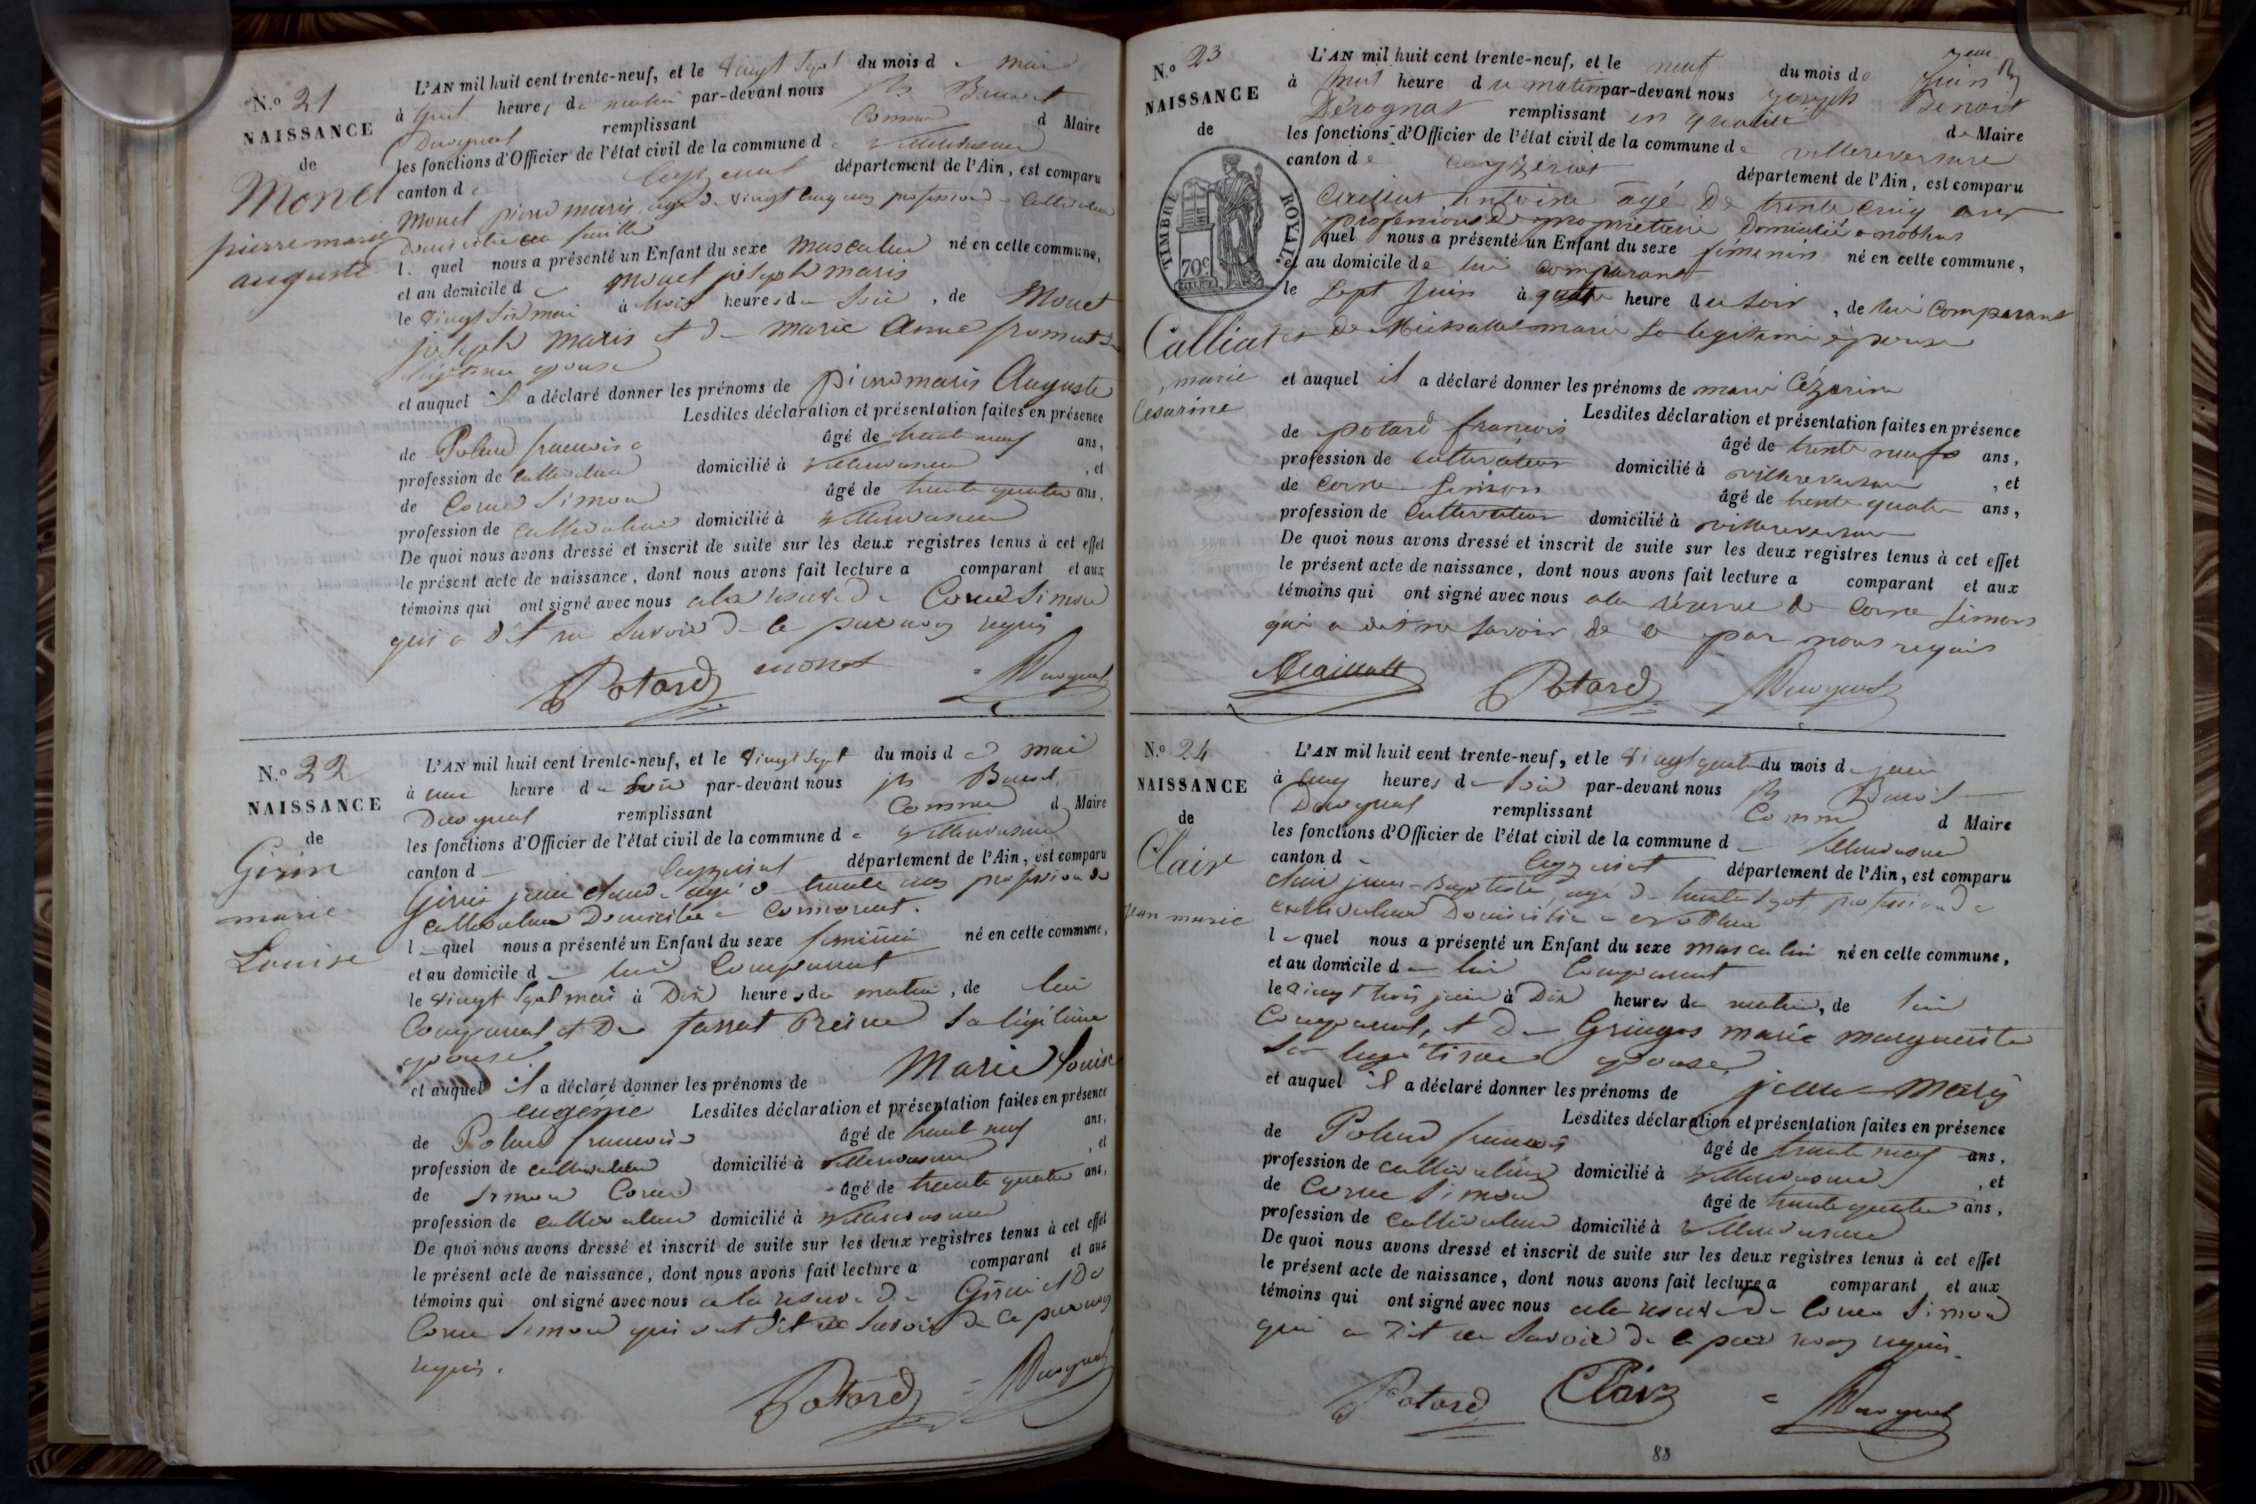 N.º 21
NAISSANCE
de
Monet
pierre marie
auguste
L'AN mil huit cent trente-neuf, et le vingt sept du mois de mai
à huit heures du matin par-devant nous jh Benoit
Derognat remplissant comme d Maire
les fonctions d'Officier de l'état civil de la commune de Villereversure
canton de Ceyzeriat département de l'Ain, est comparu
Monet pierre marie, agé de vingt cinq ans profession de Cultivateur
Domicilié
l quel nous a présenté un Enfant du sexe masculin né en cette commune,
et au domicile de monet joseph marie
le vingt six mai à trois heures du soir, de Monet
joseph marie et de marie Anne froment sa
légitime epouse
et auquel il a déclaré donner les prénoms de pierre marie Auguste
Lesdites déclaration et présentation faites en présence
de Potard francois âgé de trente neuf ans,
profession de cultivateur domicilié à Villereversure, et
de Corne Simon âgé de trente quatre ans,
profession de cultivateur domicilié à Villereversure
De quoi nous avons dressé et inscrit de suite sur les deux registres tenus à cet effet
le présent acte de naissance, dont nous avons fait lecture a comparant et aux
témoins qui ont signé avec nous a la reserve de Corne Simon
qui a dit ne savoir de ce par nous requis
Potard monet Derognat
N.º 22
NAISSANCE
de
Girin
marie
Louise
L'AN mil huit cent trente-neuf, et le vingt sept du mois de mai
à une heure du soir par-devant nous jh Benoit
Derognat remplissant comme d Maire
les fonctions d'Officier de l'état civil de la commune de Villereversure
canton de Ceyzeriat département de l'Ain, est comparu
Girin jean claude agé de trente ans profession de
cultivateur Domicilié a Cormorent.
le quel nous a présenté un Enfant du sexe feminin né en cette commune,
et au domicile de lui Comparant
le vingt sept mai à Dix heures du matin, de lui
Comparant et De Reine sa légitime
epouse
et auquel il a déclaré donner les prénoms de Marie Louise
eugénie Lesdites déclaration et présentation faites en présence
de Potard francois âgé de trente neuf ans,
profession de cultivateur domicilié à Villereversure, et
de Simon Corne âgé de trente quatre ans,
profession de cultivateur domicilié à Villereversure
De quoi nous avons dressé et inscrit de suite sur les deux registres tenus à cet effet
le présent acte de naissance, dont nous avons fait lecture a comparant et aux
témoins qui ont signé avec nous a la reserve de Girin et De
Corne Simon qui ont dit ne savoir de ce par nous
requis.
Potard Derognat
N.º 23
NAISSANCE
de
TIMBRE ROYAL
70c
Calliat
marie
Cesarine
L'AN mil huit cent trente-neuf, et le neuf du mois de Juin
à huit heure du matin par-devant nous joseph Benoit
Dérognat remplissant en qualité de Maire
les fonctions d'Officier de l'état civil de la commune de villereversure
canton de Ceyzeriat département de l'Ain, est comparu
Calliat Antoine agé De trente cinq ans
profession de propriétaire Domicilié a noblens
quel nous a présenté un Enfant du sexe féminin né en cette commune,
et au domicile de lui comparant
le sept Juin à quatre heure du soir, de lui comparant
et De marie sa legitime epouse
et auquel il a déclaré donner les prénoms de marie Cézarine
Lesdites déclaration et présentation faites en présence
de potard francois âgé de trente neuf ans,
profession de cultivateur domicilié à villereversure, et
de Corne Simon âgé de trente quatre ans,
profession de cultivateur domicilié à villereversure
De quoi nous avons dressé et inscrit de suite sur les deux registres tenus à cet effet
le présent acte de naissance, dont nous avons fait lecture a comparant et aux
témoins qui ont signé avec nous a la réserve de Corne Simon
qui a dit ne savoir de ce par nous requis
Potard Derognat
N.º 24
NAISSANCE
de
Clair
jean marie
L'AN mil huit cent trente-neuf, et le vingt quatre du mois de juin
à cinq heures du soir par-devant nous jh Benoit
Derognat remplissant Comme d Maire
les fonctions d'Officier de l'état civil de la commune de Villereversure
canton de Ceyzeriat département de l'Ain, est comparu
clair jean-Baptiste, agé de trente sept profession de
cultivateur Domicilié a
le quel nous a présenté un Enfant du sexe masculin né en cette commune,
et au domicile de lui Comparant
le vingt trois juin à Dix heures du matin, de lui
Comparant, et de marie marguerite
sa legitime epouse
et auquel il a déclaré donner les prénoms de jean-Marie
Lesdites déclaration et présentation faites en présence
de Potard francois âgé de trente neuf ans,
profession de cultivateur domicilié à Villereversure, et
de Corne Simon âgé de trente quatre ans,
profession de cultivateur domicilié à Villereversure
De quoi nous avons dressé et inscrit de suite sur les deux registres tenus à cet effet
le présent acte de naissance, dont nous avons fait lecture a comparant et aux
témoins qui ont signé avec nous a la reserve De Corne Simon
qui a Dit ne savoir de ce par nous requis.
Potard Clair Derognat
88